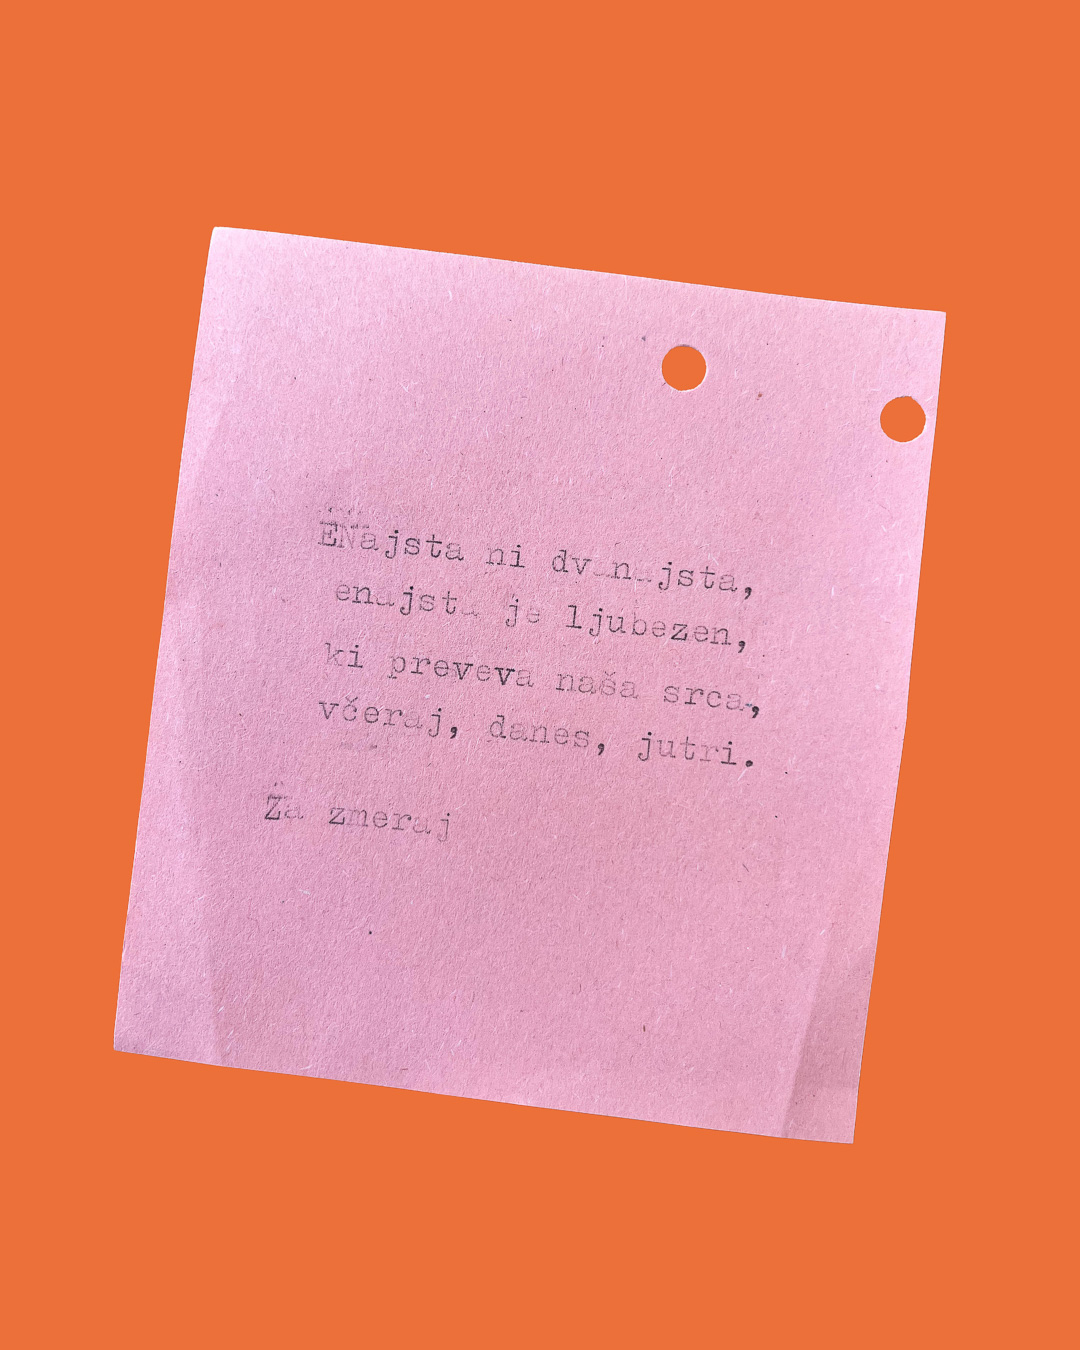 ENajsta ni dvanajsta,
enajsta je ljubezen,
ki preveva naša srca,
včeraj, danes, jutri.
Za zmeraj